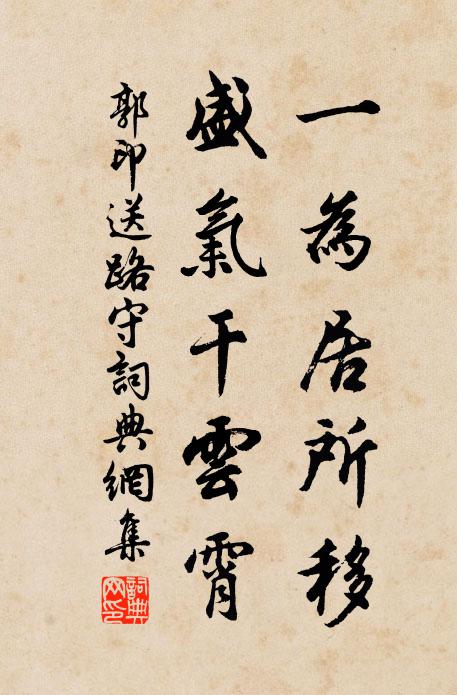 一為居所移
盛氣干雲霄
郭印送路守詞典網集
詞典